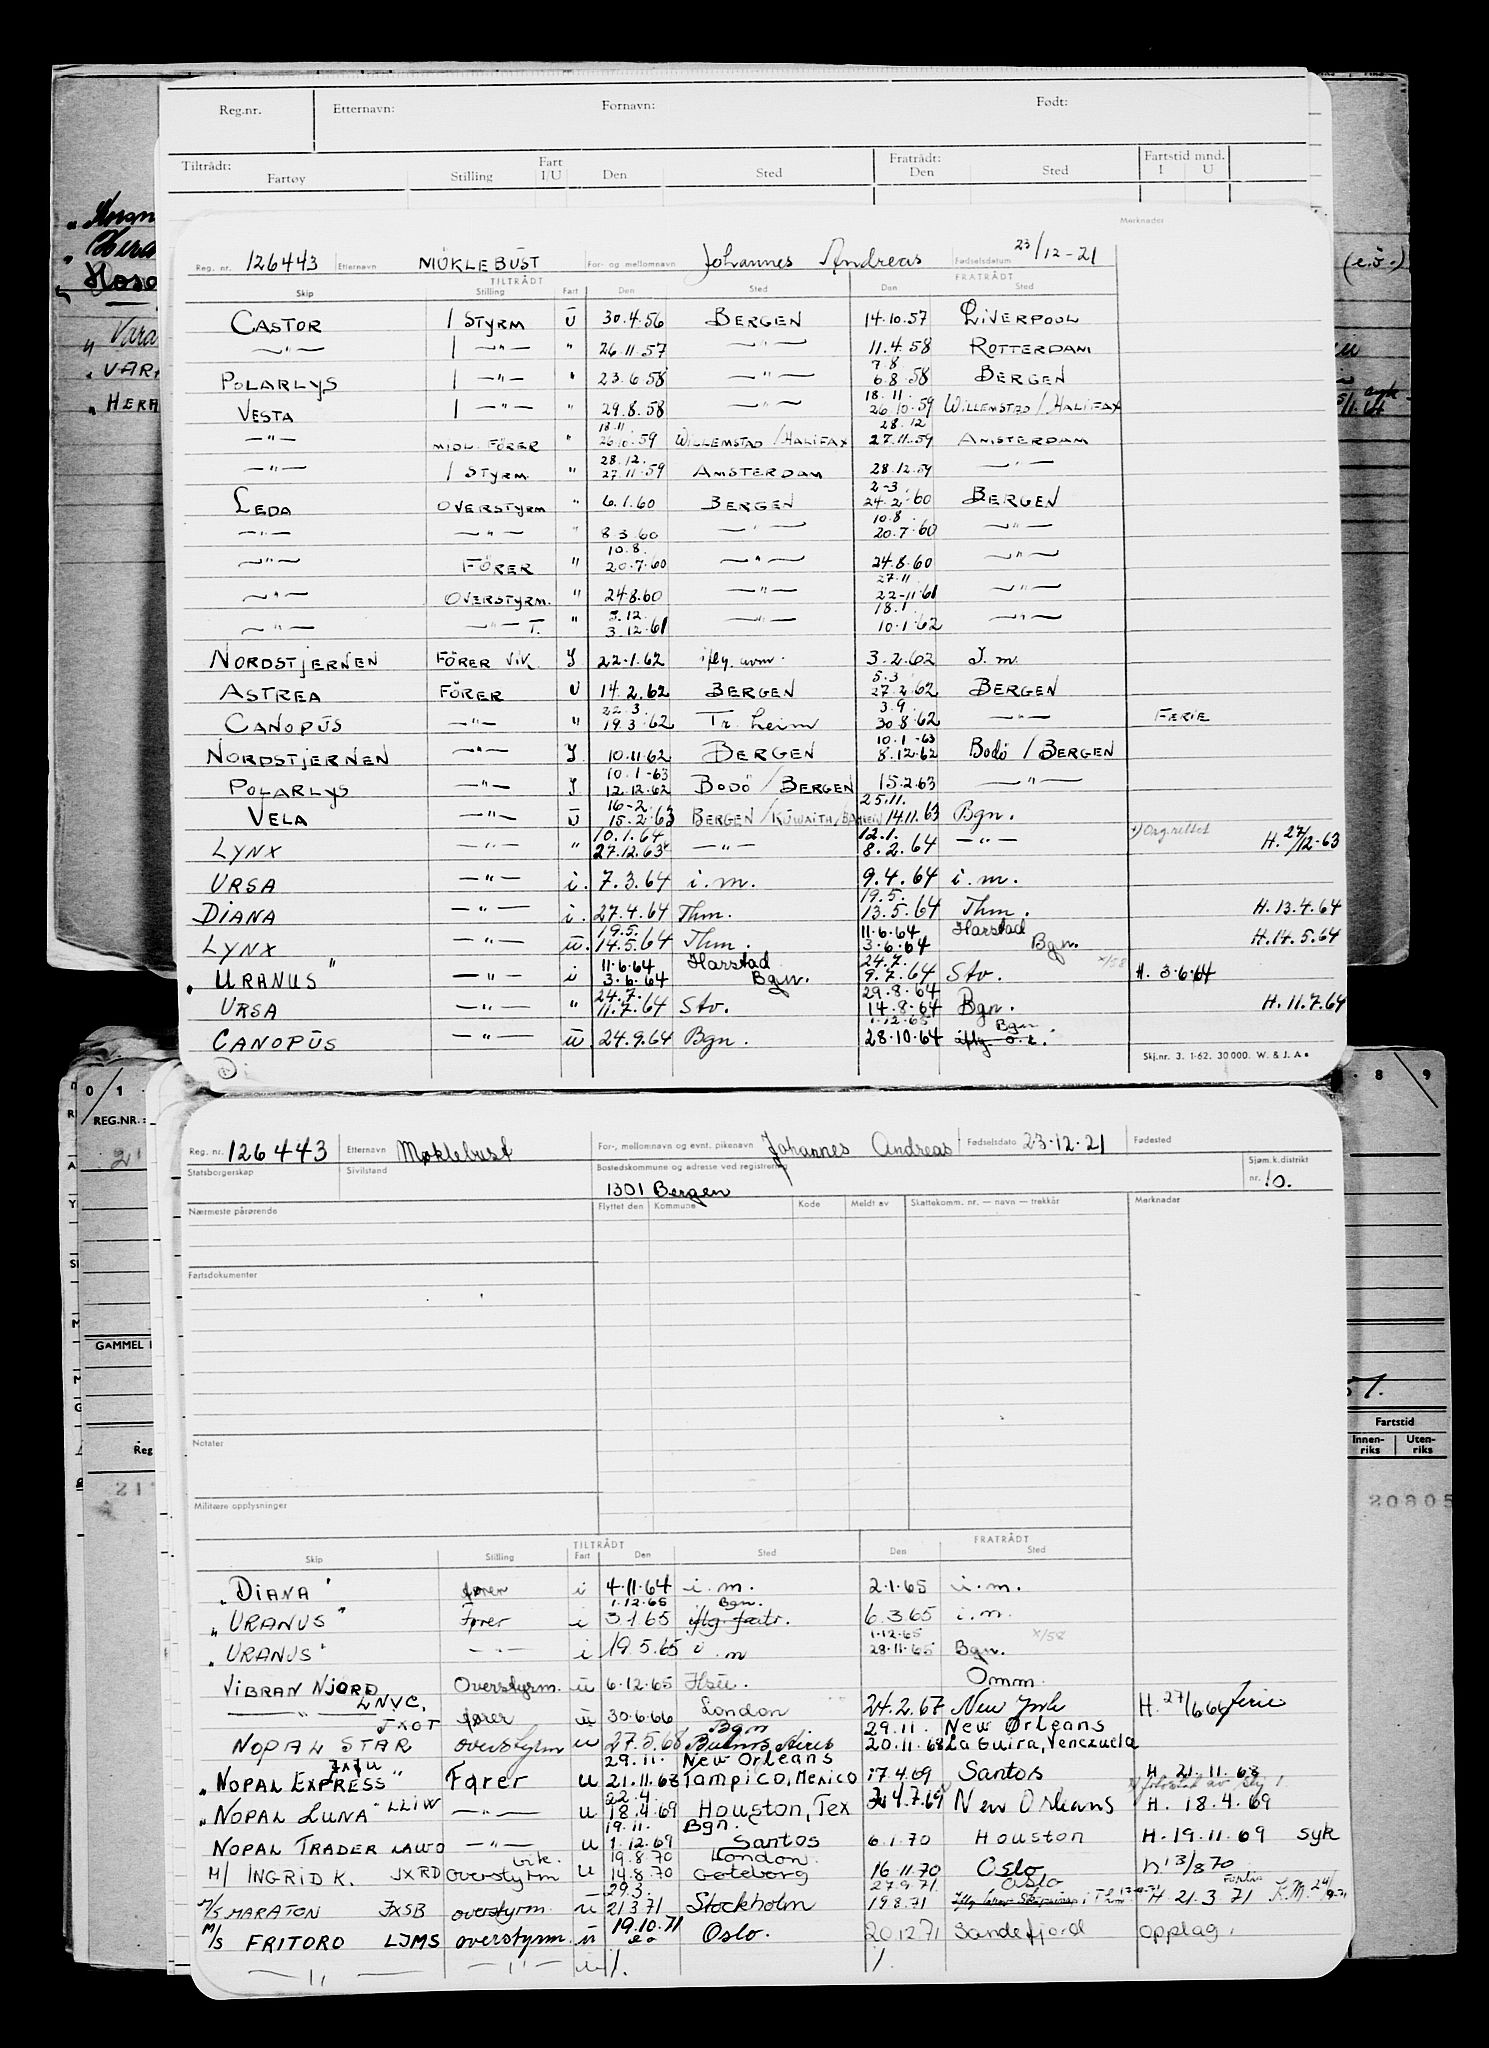 Reg.nr. Etternavn: Fornavn: Født:
Tiltrådt: Fartøy Stilling Fart I/U Den Sted Fratrådt: Den Sted Fartstid mnd. I U
Merknader
Reg. nr. 126443 Etternavn MÖKLEBUST For- og mellomnavn Johannes Andreas Fødselsdatum 23/12-21
TILTRÅDT FRATRÅDT
Skip Stilling Fart Den Sted Den Sted
CASTOR 1 STYRM U 30.4.56 BERGEN 14.10.57 LIVERPOOL
—"— 1 —"— " 26.11.57 —"— 11.4.58 ROTTERDAM
7.8
POLARLYS 1 —"— " 23.6.58 —"— 6.8.58 BERGEN
18.11.
VESTA 1 —"— " 29.8.58 —"— 26.10.59 WILLEMSTAD/HALIFAX
18.11 28.12
—"— MIDL. FÖRER " 26.10.59 WILLEMSTAD/HALIFAX 27.11.59 AMSTERDAM
28.12.
—"— 1 STYRM " 27.11.59 AMSTERDAM 28.12.59 —"—
2-3
LEDA OVERSTYRM " 6.1.60 BERGEN 24.2.60 BERGEN
10.8.
—"— —"— " 8.3.60 —"— 20.7.60 —"—
10.8.
—"— FÖRER " 20.7.60 —"— 24.8.60 —"—
27.11
—"— OVERSTYRM. " 24.8.60 —"— 22-11.61 —"—
3.12. 18.1
—"— —"— T. " 3.12.61 —"— 10.1.62 —"—
NORDSTJERNEN FÖRER VIK. I 22.1.62 iflg. avm. 3.2.62 I.m.
5.3
ASTREA FÖRER U 14.2.62 BERGEN 27.2.62 BERGEN
22.3. 3.9.
CANOPUS —"— " 19.3.62 Tr.heim 30.8.62 —"— FERIE
10.1-63
NORDSTJERNEN —"— I 10.11.62 BERGEN 8.12.62 Bodö/BERGEN
10.1-63
POLARLYS —"— I 12.12.62 BODÖ/BERGEN 15.2.63 —"—
16-2. 25.11.
VELA —"— U 15.2.63 BERGEN/KUWAITH/BAHREIN 14.11.63 Bgn.
10.1.64 12.1. Org.rettet
LYNX —"— " 27.12.63 —"— 8.2.64 —"— H. 27/12-63
URSA —"— i. 7.3.64 i.m. 9.4.64 i.m.
19.5.
DIANA —"— i. 27.4.64 Thm. 13.5.64 Thm. H.13.4.64
19.5. 11.6.64 Harstad
LYNX —"— u. 14.5.64 Thm. 3.6.64 Bgn. H.14.5.64
11.6.64 Harstad 24.7. x/58
"URANUS" —"— i 3.6.64 Bgn. 9.7.64 Stv. H. 3.6.64
24.7. 29.8.64
URSA —"— " 11.7.64 Stv. 14.8.64 Bgn. H.11.7.64
1.12.65 Bgn.
CANOPUS —"— u. 24.9.64 Bgn. 28.10.64
Skj.nr. 3. 1-62. 30000. W. & J. A.
Reg. nr. 126443 Etternavn Møklebust For-, mellomnavn og evnt. pikenavn Johannes Andreas Fødselsdato 23.12.21 Fødested
Statsborgerskap Sivilstand Bostedskommune og adresse ved registrering 1301 Bergen Sjøm.k.distrikt nr. 10.
Nærmeste pårørende Flyttet den Kommune Kode Meldt av Skattekomm. nr. — navn — trekkår Merknader
Fartsdokumenter
Notater
Militære opplysninger
TILTRÅDT FRATRÅDT
Skip Stilling Fart Den Sted Den Sted
"DIANA" fører i 4.11.64 i.m. 2.1.65 i.m.
1.12.65 Bgn.
"URANUS" Fører i 3.1.65 iflg. fratr. 6.3.65 i.m.
1.12.65 x/58
"URANUS" —"— i 19.5.65 i.m 28.11.65 Bgn.
VIBRAN NJORD Overstyrm. u 6.12.65 Omm.
LNVC.
—"— fører u 30.6.66 London 24.2.67 New York H. 27/6.66 ferie
JXOT Bgn 29.11. New Orleans
NOPAL STAR overstyrm u 27.5.68 Buenos Aires 20.11.68 La Guira, Venezuela
29.11. New Orleans
"NOPAL EXPRESS" Fører u 21.11.68 Tampico, Mexico 17.4.69 Santos H. 21.11.68
22.4.
"NOPAL LUNA" LLIW —"— u 18.4.69 Houston, Tex 24.7.69 New Orleans H. 18.4.69
19.11. Bgn.
NOPAL TRADER LAWO —"— u 1.12.69 Santos 6.1.70 Houston H. 19.11.69 syk
vik. 19.8.70 London.
M/ INGRID K. JXRD overstyrm u 14.8.70 Gøteborg 16.11.70 Oslo h 13/8 70
29.3. 27.9.71 Oslo
M/S MARATON JXSB overstyrm. u 21.3.71 Stockholm 19.8.71 H. 21.3.71
19.10.71
M/S FRITORO LJMS overstyrm. u Oslo. 20.12.71 Sandefjord opplag.
—"— —"— u /. /.
REG.NR.:
GAMMEL
Reg
Fartstid
Innen-riks Uten-riks
20805